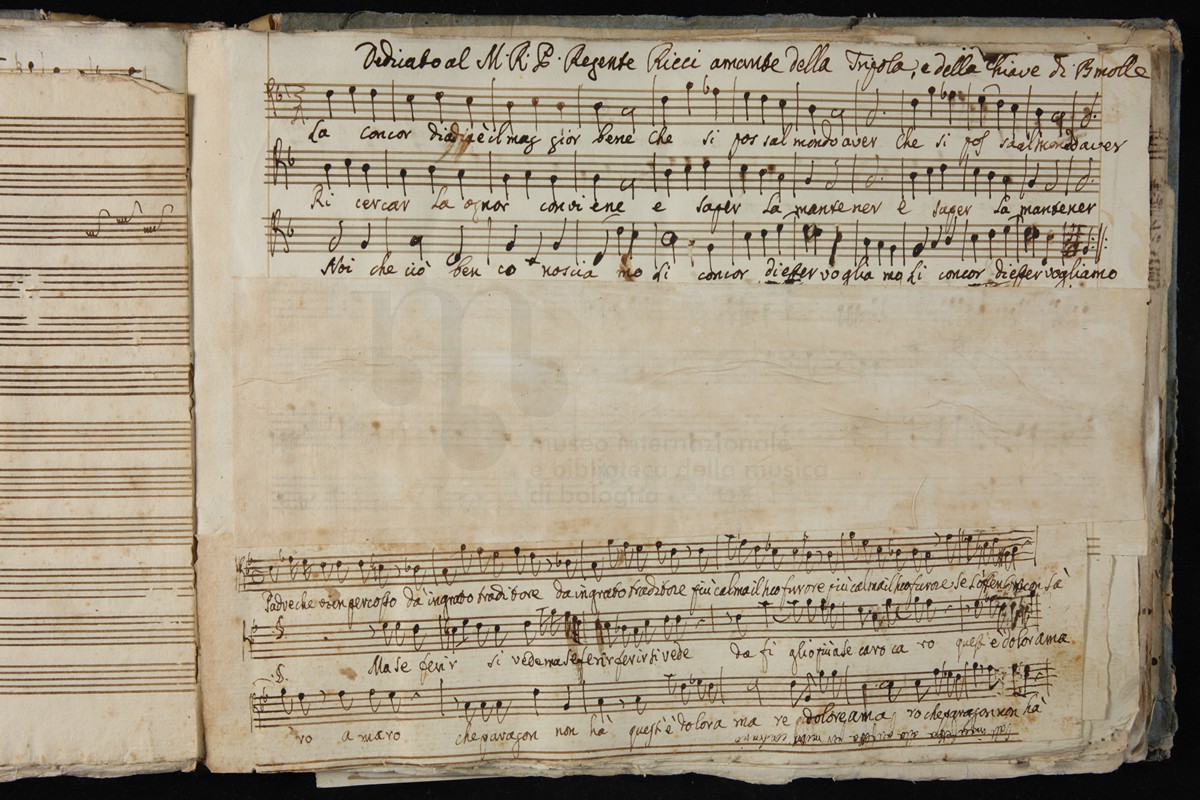 Dedicato al M. R. P. Regente Ricci amante della Trigola, e della Chiave di Bmolle
La concor dia è il mag gior bene che si pos sa al mondo aver che si pos sa al mondo aver
Ri cercar la ognor conviene e saper la mantener e saper la mantener
Noi che ciò ben co noscia mo di concor dia esser voglia mo di concor dia esser vogliamo
museo internazionale
e biblioteca della musica
di bologna
Padre che è con percosso da ingrato traditore da ingrato traditore più calma il furore più calma il furore se l'offensor non sà
Ma se ferir si vede ma se ferir ferir si vede da fi glio più se caro ca ro quest' è dolor ama
ro amaro che paragon non hà quest' è dolor a ma re dolore ama ro che paragon non hà